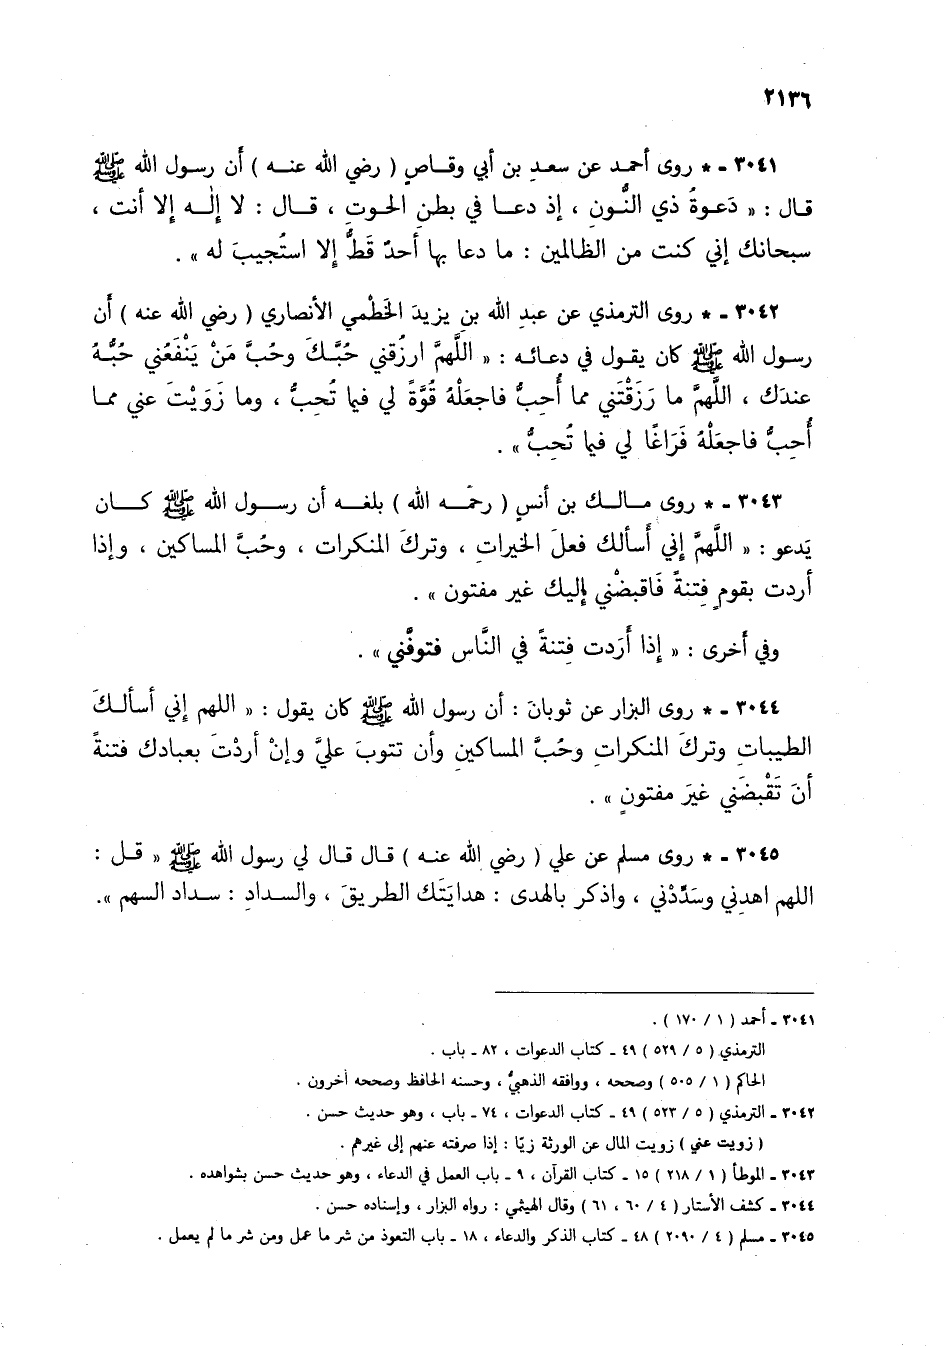 ٢١٣٦
٣٠٤١ - * روى أحمد عن سعدِ بن أبي وقاصٍ ( رضي الله عنه ) أن رسول الله ﷺ
قال : « دَعوةُ ذي النُّونِ ، إذ دعا في بطنِ الحوتِ ، قال : لا إلٰه إلا أنت ،
سبحانك إني كنت من الظالمين : ما دعا بها أحدٌ قَطُّ إلا استُجيبَ له » .
٣٠٤٢ - * روى الترمذي عن عبدِ الله بنِ يزيدَ الخَطْمي الأنصاري ( رضي الله عنه ) أن
رسول الله ﷺ كان يقول في دعائه : « اللَّهمَّ ارزُقني حُبَّكَ وحُبَّ مَنْ يَنْفَعُني حُبُّهُ
عندَك ، اللَّهمَّ ما رَزَقْتَني مما أُحِبُّ فاجعَلْهُ قُوَّةً لي فيما تُحبُّ ، وما زَوَيْتَ عني مما
أُحِبُّ فاجعَلْهُ فَرَاغًا لي فيما تُحبُّ » .
٣٠٤٣ - * روى مالك بن أنسٍ ( رحمَه الله ) بلغه أن رسول الله ﷺ كان
يَدعو : « اللَّهمَّ إني أَسألك فعلَ الخيراتِ ، وتركَ المنكرات ، وحُبَّ المساكين ، وإذا
أردت بقومٍ فِتنةً فَاقبضْني إليك غير مفتون » .
وفي أخرى : « إذا أَردت فِتنةً في النَّاس فتوفَّني » .
٣٠٤٤ - * روى البزار عن ثوبانَ : أن رسول الله ﷺ كان يقول : « اللهم إني أسألكَ
الطيباتِ وتركَ المنكراتِ وحُبَّ المساكينِ وأن تتوبَ عليَّ وإنْ أردْتَ بعبادك فتنةً
أنَ تَقْبضَني غيرَ مفتونٍ » .
٣٠٤٥ - * روى مسلم عن علي ( رضي الله عنه ) قال قال لي رسول الله ﷺ « قل :
اللهم اهدِني وسَدِّدْني ، واذكر بالهدى : هدايَتَك الطريقَ ، والسدادِ : سداد السهم » .
٣٠٤١ - أحمد ( ١ / ١٧٠ ) .
الترمذي ( ٥ / ٥٢٩ ) ٤٩ - كتاب الدعوات ، ٨٢ - باب .
الحاكم ( ١ / ٥٠٥ ) وصححه ، ووافقه الذهبيُّ ، وحسنه الحافظ وصححه آخرون .
٣٠٤٢ - الترمذي ( ٥ / ٥٢٣ ) ٤٩ - كتاب الدعوات ، ٧٤ - باب ، وهو حديث حسن .
( زويت عني ) زويت المال عن الورثة زيًا : إذا صرفته عنهم إلى غيرهم .
٣٠٤٣ - الموطأ ( ١ / ٢١٨ ) ١٥ - كتاب القرآن ، ٩ - باب العمل في الدعاء ، وهو حديث حسن بشواهده .
٣٠٤٤ - كشف الأستار ( ٤ / ٦٠ ، ٦١ ) وقال الهيثمي : رواه البزار ، وإسناده حسن .
٣٠٤٥ - مسلم ( ٤ / ٢٠٩٠ ) ٤٨ - كتاب الذكر والدعاء ، ١٨ - باب التعوذ من شر ما عمل ومن شر ما لم يعمل .